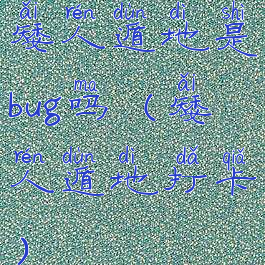 ǎi rén dùn dì shì
矮人遁地是
ma ǎi
bug吗(矮
rén dùn dì dǎ qiǎ
人遁地打卡
)